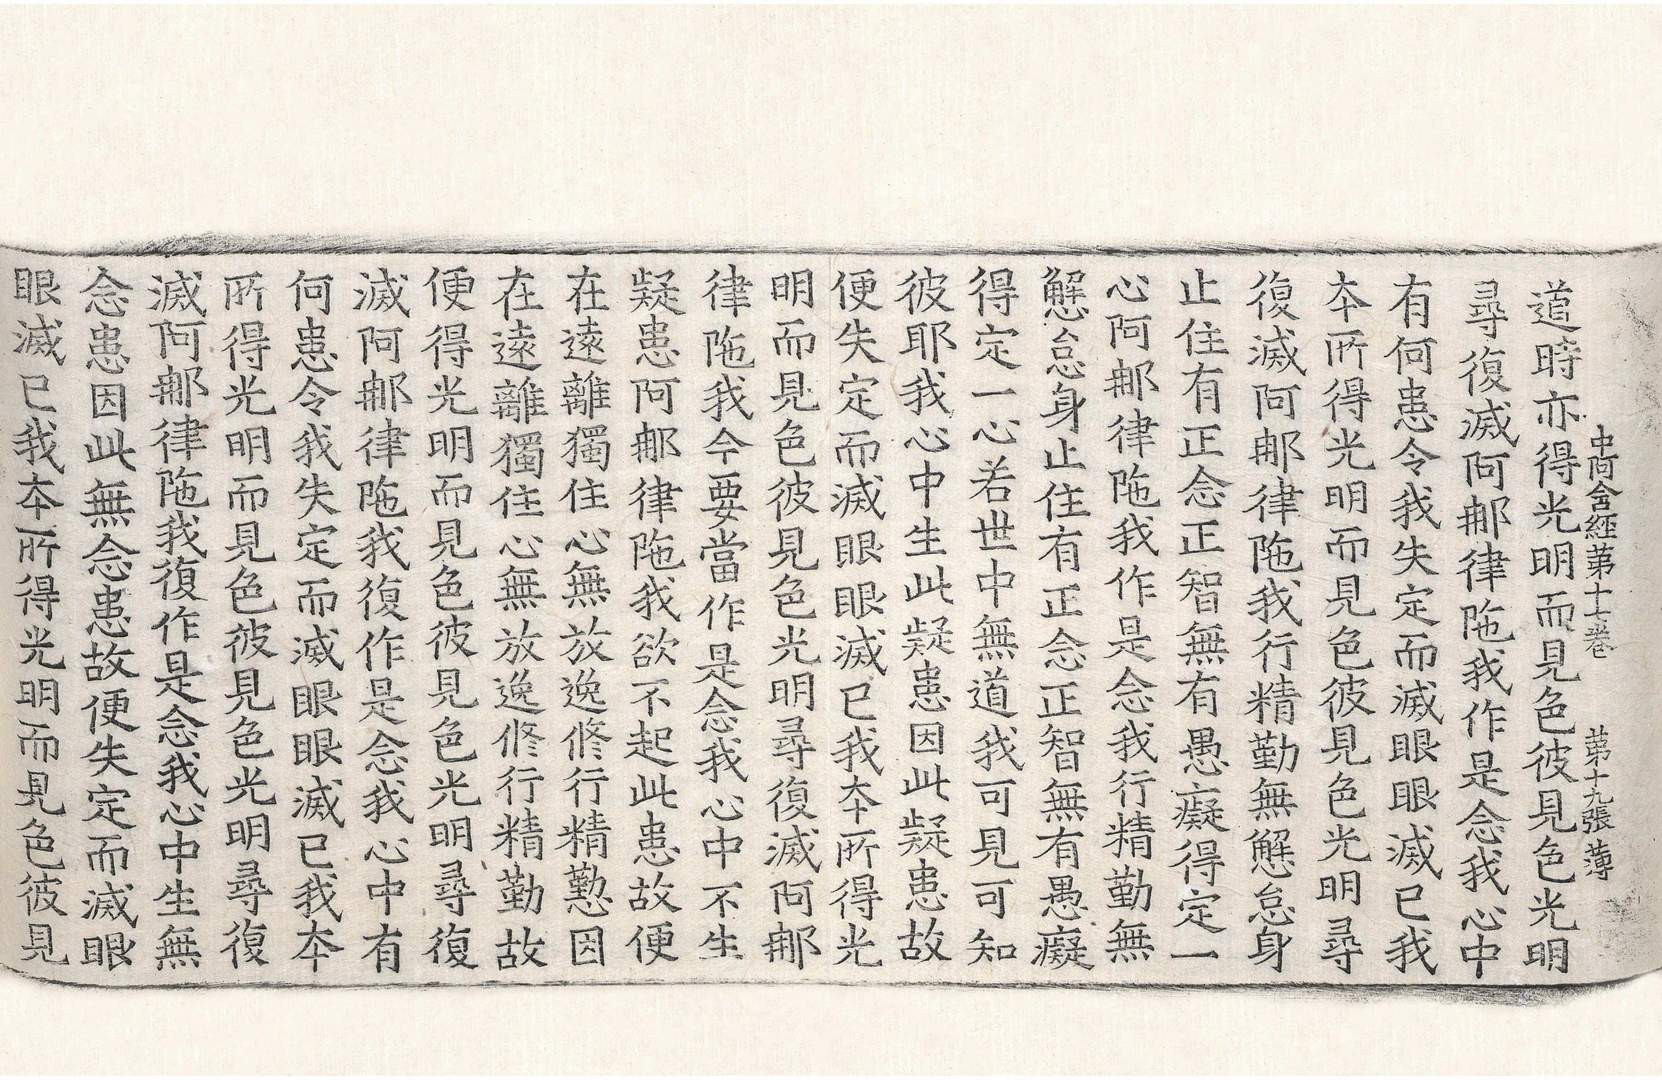 中阿含經苐十七卷 苐十九張 薄
道時亦得光明而見色彼見色光明
尋復滅阿那律陁我作是念我心中
有何患令我失定而滅眼眼滅已我
本所得光明而見色彼見色光明尋
復滅阿那律陁我行精勤無懈怠身
止住有正念正智無有愚癡得定一
心阿那律陁我作是念我行精勤無
懈怠身止住有正念正智無有愚癡
得定一心若世中無道我可見可知
彼耶我心中生此疑患因此疑患故
便失定而滅眼眼滅已我本所得光
明而見色彼見色光明尋復滅阿那
律陁我今要當作是念我心中不生
疑患阿那律陁我欲不起此患故便
在遠離獨住心無放逸修行精懃因
在遠離獨住心無放逸修行精勤故
便得光明而見色彼見色光明尋復
滅阿那律陁我復作是念我心中有
何患令我失定而滅眼眼滅已我本
所得光明而見色彼見色光明尋復
滅阿那律陁我復作是念我心中生無
念患因此無念患故便失定而滅眼
眼滅已我本所得光明而見色彼見